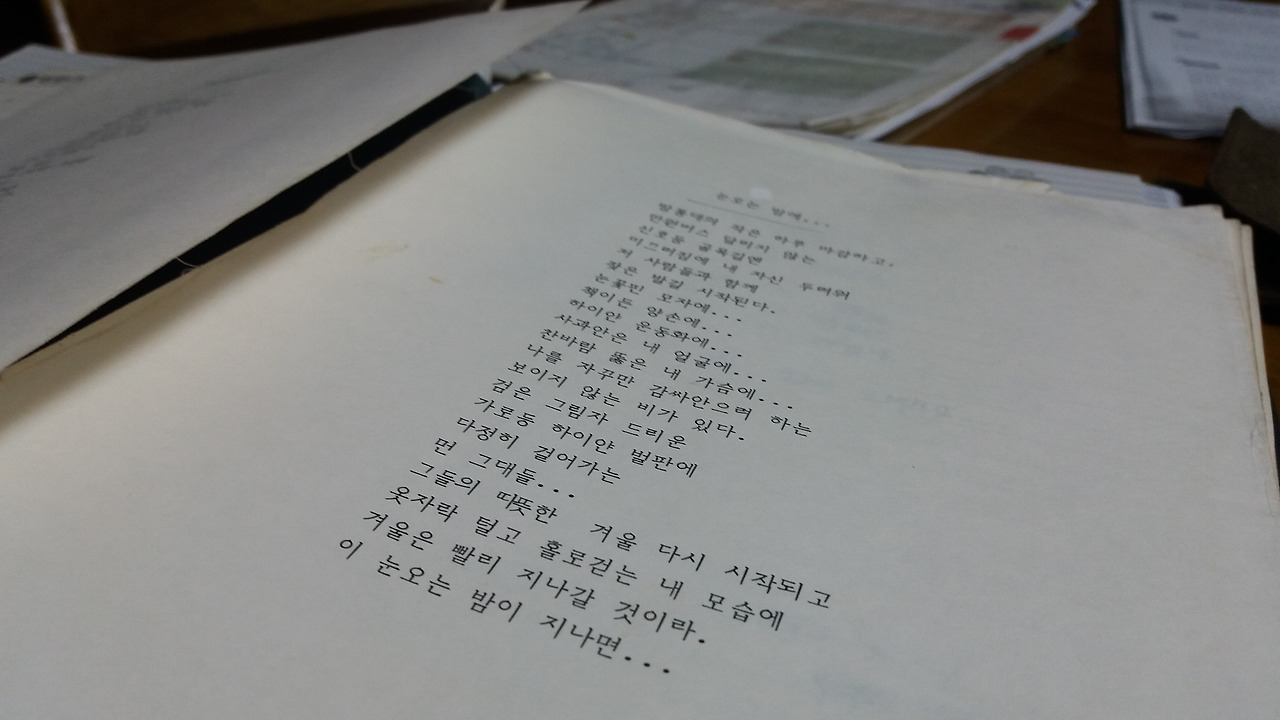 눈오는 밤에...
작은 하루 마감하고,
안련버스 달리지 않는
신호등 골목길엔
미끄러짐에 내 자신 두려워
저 사람들과 함께
잦은 발길 시작된다.
눈꽃핀 모자에...
책이든 양손에...
하이얀 운동화에...
사과안은 내 얼굴에...
찬바람 뚫은 내 가슴에...
나를 자꾸만 감싸안으려 하는
보이지 않는 비가 있다.
검은 그림자 드리운
가로등 하이얀 벌판에
다정히 걸어가는
먼 그대들...
그들의 따뜻한 겨울 다시 시작되고
웃자락 털고 홀로걷는 내 모습에
겨울은 빨리 지나갈 것이라.
이 눈오는 밤이 지나면...